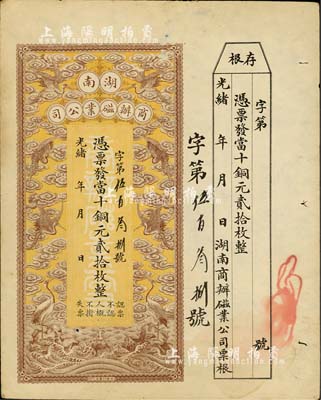 上海陽明拍賣
存根
字第　號
憑票發當十銅元貳拾枚整
光緒　年　月　日湖南商辦磁業公司票根
字第伍百　捌號
湖南
商辦磁業公司
字第伍百　捌號
憑票發當十銅元貳拾枚整
光緒　年　月　日
認票不認人
失票
上海陽明拍賣